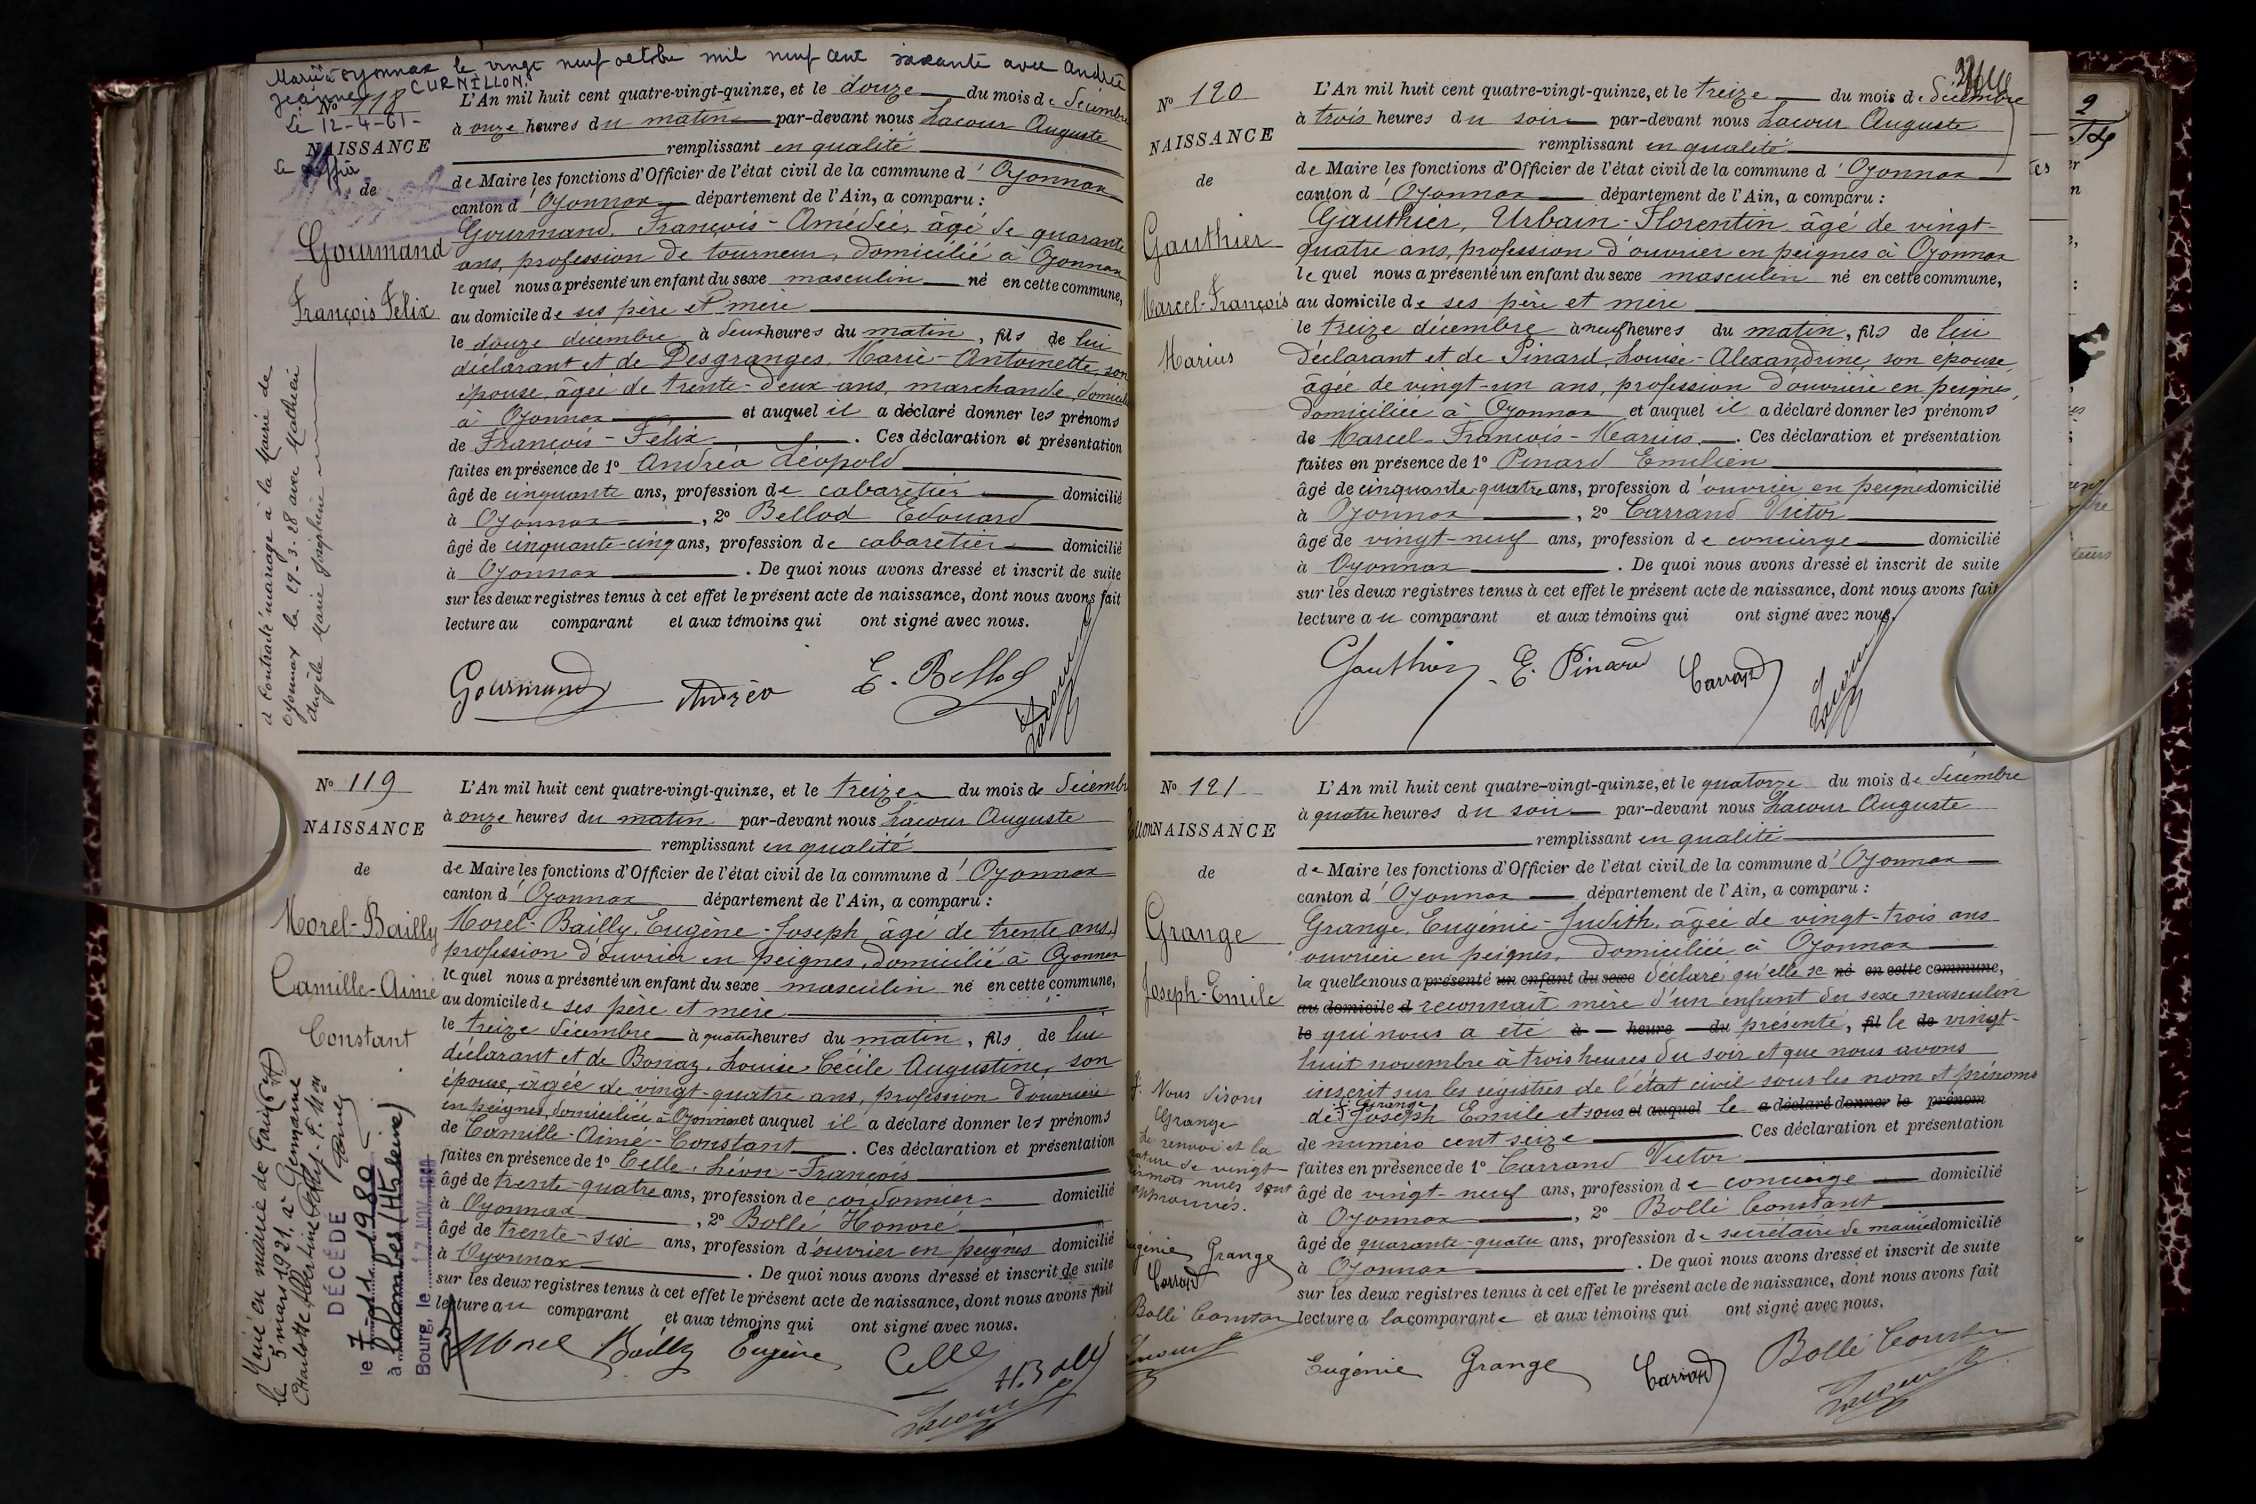 Marié à Oyonnax le vingt neuf octobre mil neuf cent soixante avec Andrée
Jeanne CURNILLON.
Le 12-4-61-
No 118
NAISSANCE
de
Gourmand
François Felix
a contracté mariage à la Mairie de
Oyonnax le 29-3-28 avec Mathieu
Angèle Marie Joséphine
L'An mil huit cent quatre-vingt-quinze, et le douze du mois de décembre
à onze heures du matin par-devant nous Lacour Auguste
remplissant en qualité
de Maire les fonctions d'Officier de l'état civil de la commune d'Oyonnax
canton d'Oyonnax département de l'Ain, a comparu :
Gourmand, François-Amédée, âgé de quarante
ans, profession de tourneur, domicilié à Oyonnax
lequel nous a présenté un enfant du sexe masculin né en cette commune,
au domicile de ses père et mère
le douze décembre à deux heures du matin, fils de lui
déclarant et de Desgranges, Marie-Antoinette, son
épouse, âgée de trente-deux ans, marchande, domiciliée
à Oyonnax et auquel il a déclaré donner les prénoms
de François-Félix. Ces déclaration et présentation
faites en présence de 1o Andréa Léopold
âgé de cinquante ans, profession de cabaretier domicilié
à Oyonnax, 2o Bellod Edouard
âgé de cinquante-cinq ans, profession de cabaretier domicilié
à Oyonnax. De quoi nous avons dressé et inscrit de suite
sur les deux registres tenus à cet effet le présent acte de naissance, dont nous avons fait
lecture au comparant et aux témoins qui ont signé avec nous.
Gourmand Andréa E. Bellod Lacour
No 119
NAISSANCE
de
Morel-Bailly
Camille-Aimé
Constant
le 5 mars 1921, à Germaine
DÉCÉDÉ
le 7-11-1980
à Colombes (Hts Seine)
Bourg, le 17 NOV. 1980
L'An mil huit cent quatre-vingt-quinze, et le treize du mois de décembre
à onze heures du matin par-devant nous Lacour Auguste
remplissant en qualité
de Maire les fonctions d'Officier de l'état civil de la commune d'Oyonnax
canton d'Oyonnax département de l'Ain, a comparu :
Morel-Bailly, Eugène-Joseph âgé de trente ans,
profession d'ouvrier en peignes, domicilié à Oyonnax
lequel nous a présenté un enfant du sexe masculin né en cette commune,
au domicile de ses père et mère
le treize décembre à quatre heures du matin, fils de lui
déclarant et de Bonaz, Louise Cécile Augustine, son
épouse, âgée de vingt-quatre ans, profession d'ouvrière
en peignes, domiciliée à Oyonnax et auquel il a déclaré donner les prénoms
de Camille-Aimé-Constant. Ces déclaration et présentation
faites en présence de 1o Celle, Léon-François
âgé de trente-quatre ans, profession de cordonnier domicilié
à Oyonnax, 2o Bollé Honoré
âgé de trente-six ans, profession d'ouvrier en peignes domicilié
à Oyonnax. De quoi nous avons dressé et inscrit de suite
sur les deux registres tenus à cet effet le présent acte de naissance, dont nous avons fait
lecture au comparant et aux témoins qui ont signé avec nous.
Morel Bailly Eugène Celle H. Bollé
Lacour
No 120
NAISSANCE
de
Gauthier
Marcel-François
Marius
L'An mil huit cent quatre-vingt-quinze, et le treize du mois de décembre
à trois heures du soir par-devant nous Lacour Auguste
remplissant en qualité
de Maire les fonctions d'Officier de l'état civil de la commune d'Oyonnax
canton d'Oyonnax département de l'Ain, a comparu :
Gauthier, Urbain-Florentin âgé de vingt-
quatre ans, profession d'ouvrier en peignes à Oyonnax
lequel nous a présenté un enfant du sexe masculin né en cette commune,
au domicile de ses père et mère
le treize décembre à neuf heures du matin, fils de lui
déclarant et de Pinard, Louise-Alexandrine, son épouse,
âgée de vingt-un ans, profession d'ouvrière en peignes,
domiciliée à Oyonnax et auquel il a déclaré donner les prénoms
de Marcel-François-Marius. Ces déclaration et présentation
faites en présence de 1o Pinard Emilien
âgé de cinquante quatre ans, profession d'ouvrier en peignes domicilié
à Oyonnax, 2o Carrand Victor
âgé de vingt-neuf ans, profession de concierge domicilié
à Oyonnax. De quoi nous avons dressé et inscrit de suite
sur les deux registres tenus à cet effet le présent acte de naissance, dont nous avons fait
lecture au comparant et aux témoins qui ont signé avec nous.
Gauthier E. Pinard Carrand Lacour
No 121
NAISSANCE
de
Grange
Joseph-Emile
Nous disons
Grange
renvoi et la
de vingt-
mots nuls sont
approuvés.
Eugénie Grange
Carrand
Bollé Constan
Lacour
L'An mil huit cent quatre-vingt-quinze, et le quatorze du mois de décembre
à quatre heures du soir par-devant nous Lacour Auguste
remplissant en qualité
de Maire les fonctions d'Officier de l'état civil de la commune d'Oyonnax
canton d'Oyonnax département de l'Ain, a comparu :
Grange, Eugénie-Judith, âgée de vingt-trois ans
ouvrière en peignes, domiciliée à Oyonnax
laquelle nous a présenté un enfant du sexe déclaré qu'elle se né en cette commune,
au domicile d reconnait mère d'un enfant du sexe masculin
le qui nous a été à heure du présenté, fil le de vingt-
huit novembre à trois heures du soir et que nous avons
inscrit sur les registres de l'état civil sous les nom et prénoms
de Grange Joseph Emile et sous et auquel le a déclaré donner le prénom
de numéro cent seize. Ces déclaration et présentation
faites en présence de 1o Carrand Victor
âgé de vingt-neuf ans, profession de concierge domicilié
à Oyonnax, 2o Bollé Constant
âgé de quarante-quatre ans, profession de secrétaire de mairie domicilié
à Oyonnax. De quoi nous avons dressé et inscrit de suite
sur les deux registres tenus à cet effet le présent acte de naissance, dont nous avons fait
lecture a la comparante et aux témoins qui ont signé avec nous.
Eugénie Grange Carrand Bollé Constan
Lacour